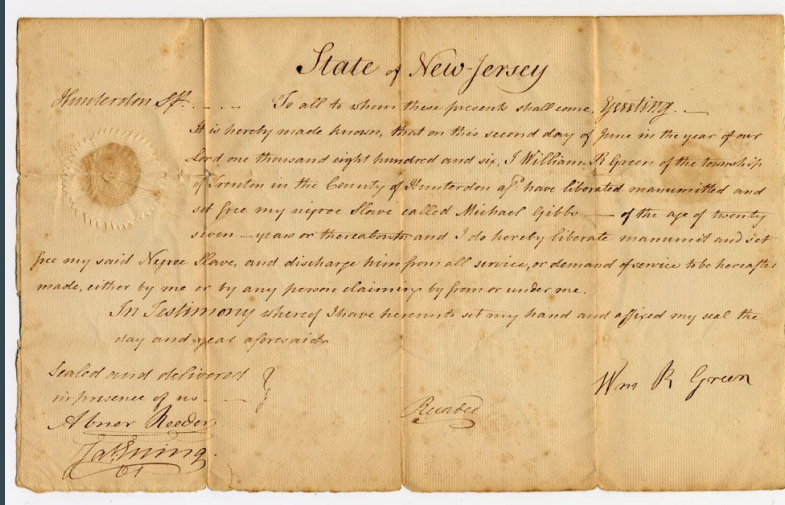 State of New-Jersey
Hunterdon Ss. To all to whom these presents shall come, Greeting.
It is hereby made known, that on this second day of June in the year of our
Lord one thousand eight hundred and six, I William R Green of the township
of Trenton in the County of Hunterdon afd. have liberated manumitted and
set free my negroe Slave called Michael Gibbs — of the age of twenty
seven — years or thereabouts and I do hereby liberate manumit and set
free my said Negroe Slave, and discharge him from all service, or demand of service to be hereafter
made, either by me or by any person claiming by from or under me.
In Testimony whereof I have hereunto set my hand and affixed my seal the
day and year aforesaid.
Sealed and delivered
in presence of us
Wm R Green
Abner Reeder
Recorded
Jas Ewing